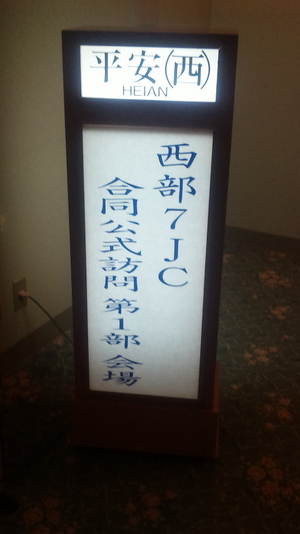 平安(西)
HEIAN
西部7JC
合同公式訪問 第1部 会場